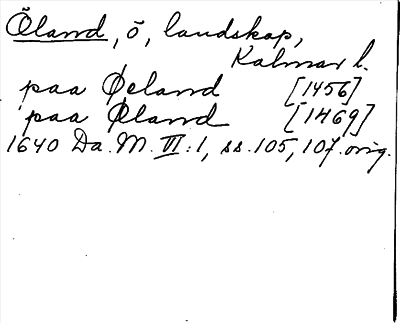 Öland, ö, landskap,
Kalmar l.
paa Øeland [1456]
paa Øland [1469]
1640 Da. M. VI:1, ss. 105, 107. orig.